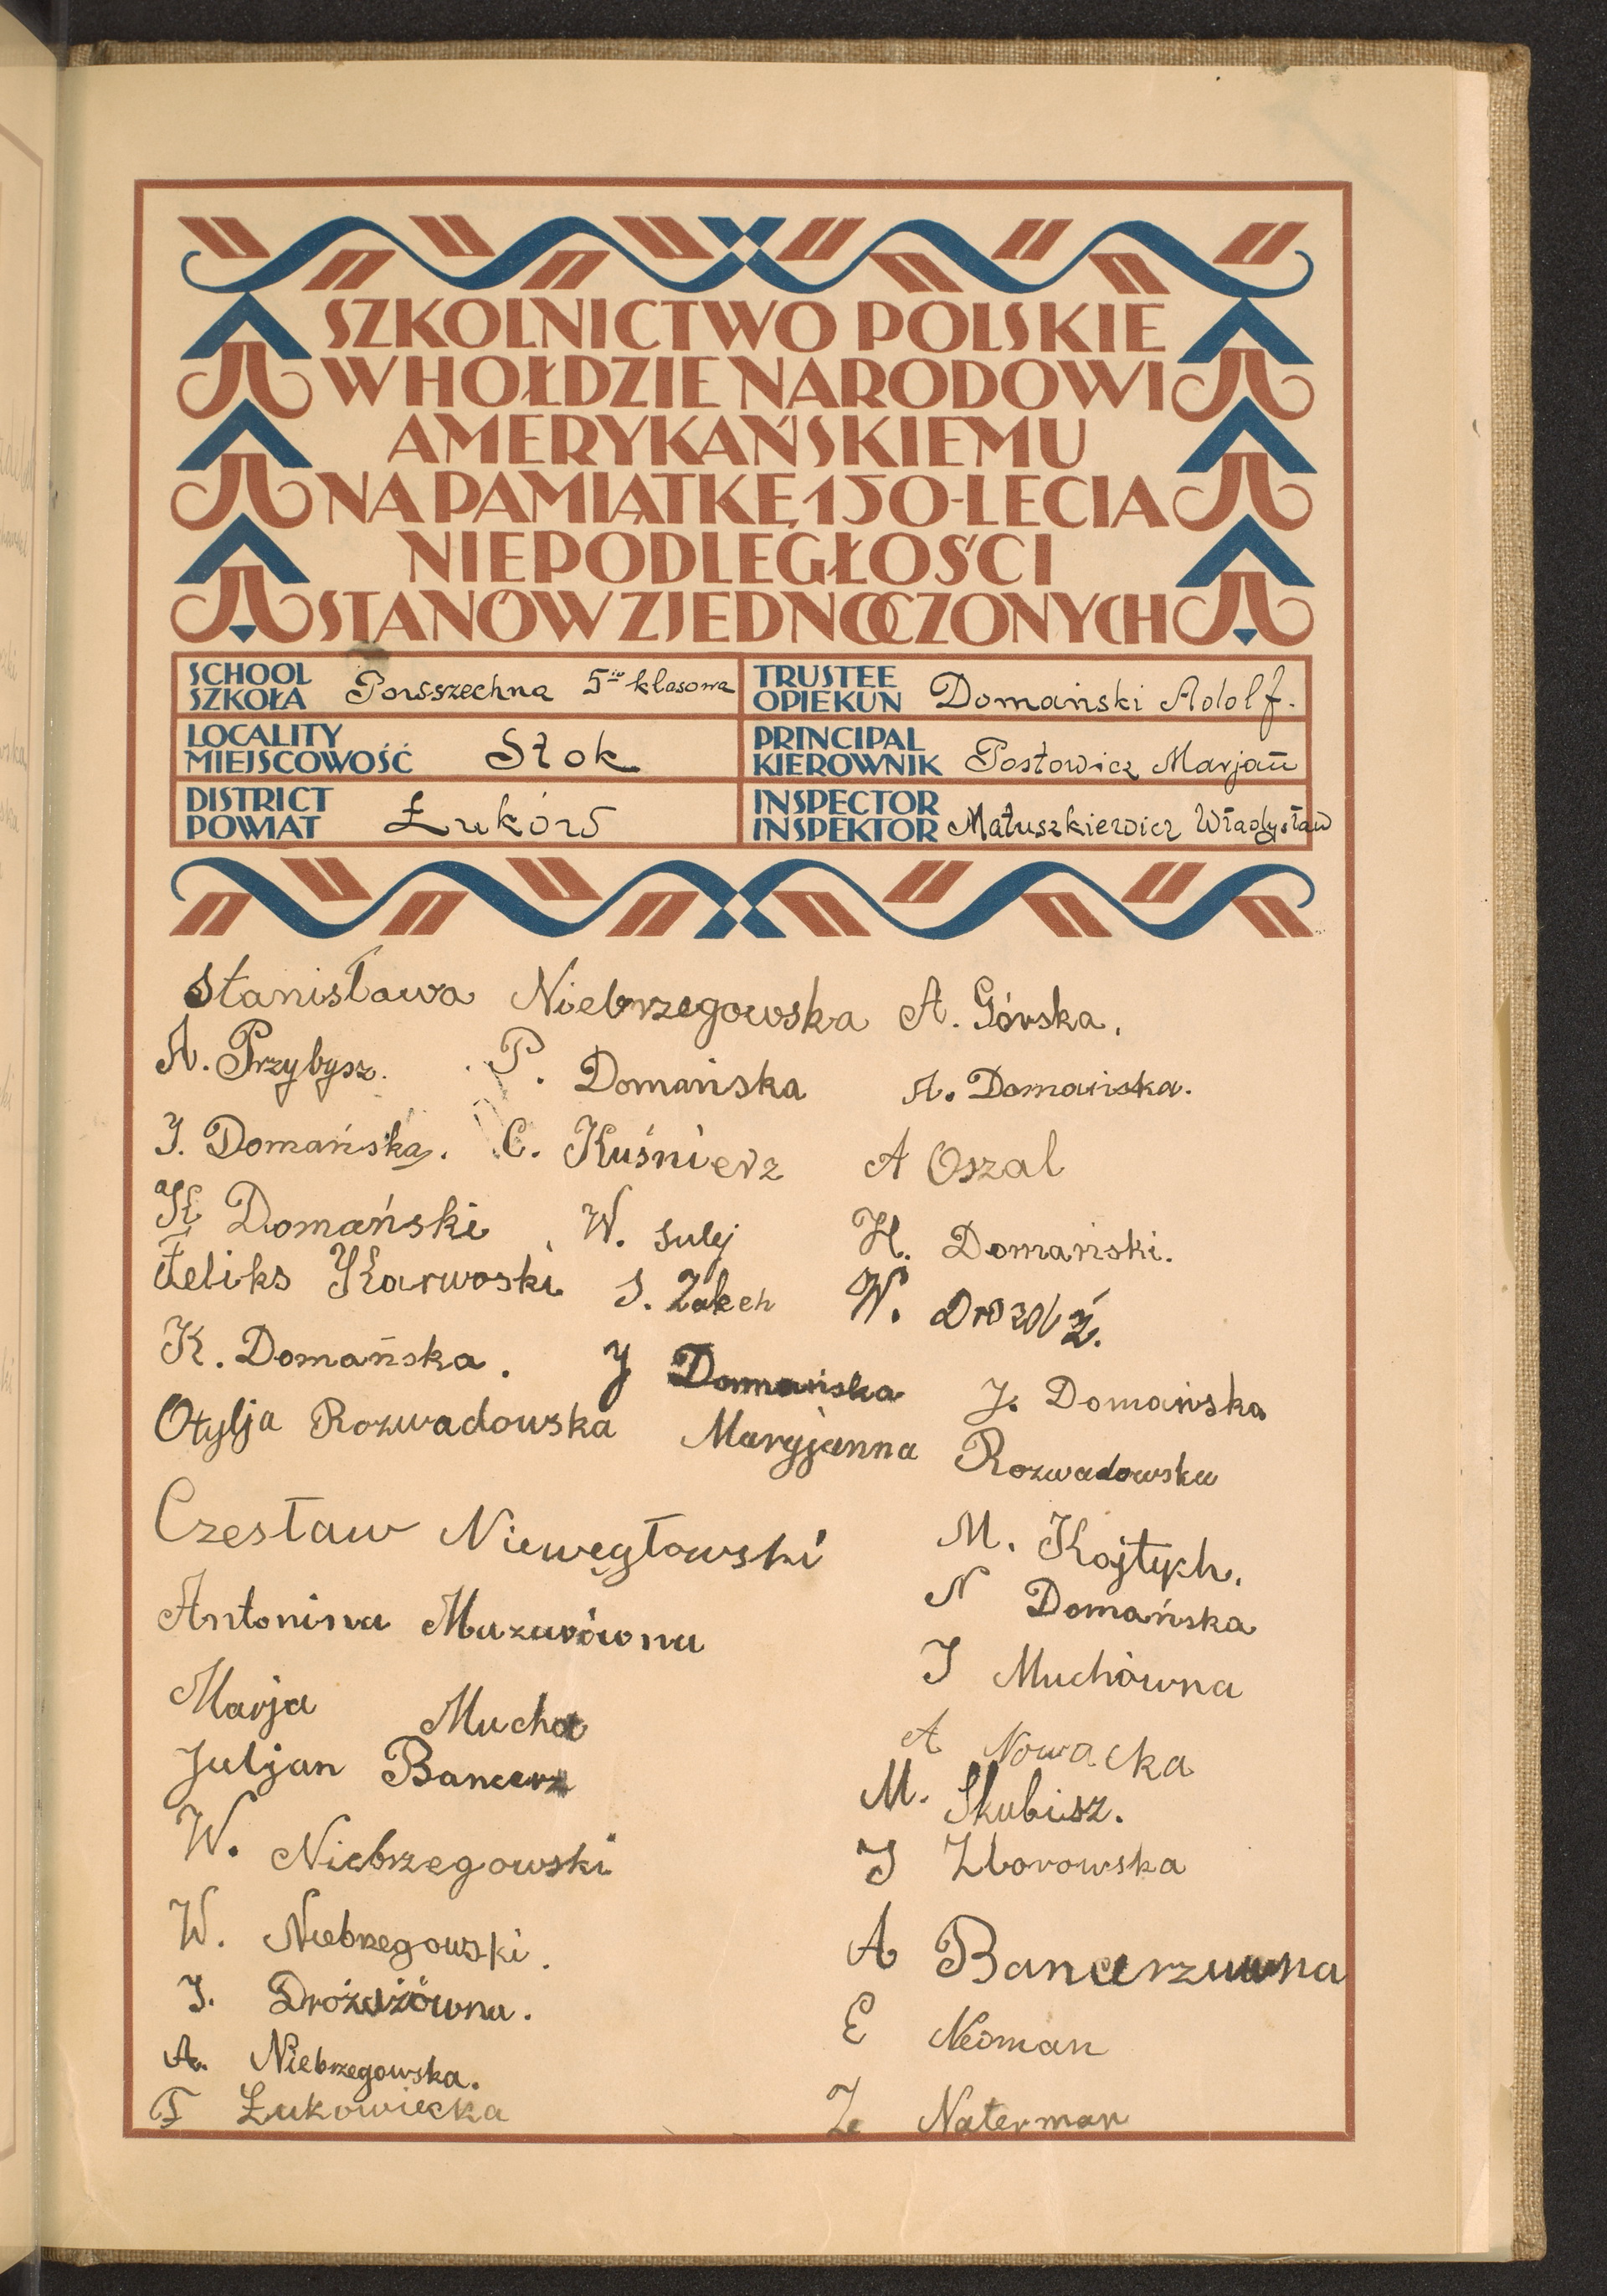 SZKOLNICTWO POLSKIE
W HOŁDZIE NARODOWI
AMERYKAŃSKIEMU
NA PAMIĄTKĘ 150-LECIA
NIEPODLEGŁOŚCI
STANÓW ZJEDNOCZONYCH
SCHOOL
SZKOŁA Powszechna 5-io klasowa
TRUSTEE
OPIEKUN Domański Adolf.
LOCALITY
MIEJSCOWOŚĆ Stok
PRINCIPAL
KIEROWNIK Postowicz Marjan
DISTRICT
POWIAT Łuków
INSPECTOR
INSPEKTOR Matuszkiewicz Władysław
Stanisława Niebrzegowska A. Górska.
A. Przybysz. P. Domańska A. Domańska.
J. Domańska. C. Kuśnierz A Oszal
K Domański W. Sulej H. Domański.
Feliks Karwoski S. W. Drozdź.
K. Domańska. J Domańska J. Domańska
Otylja Rozwadowska Maryjanna Rozwadowska
Czesław Niewęgłowski M. Kojtych.
Antonina Mazurówna N Domańska
Marja Mucha J Muchówna
Juljan Bancerz A Nowacka
W. Niebrzegowski M. Skubisz.
W. Niebrzegowski. J Zborowska
J. Drożdżówna. A Bancerzuwna
A. Niebrzegowska. E Neoman
F Łukowiecka Z Naterman